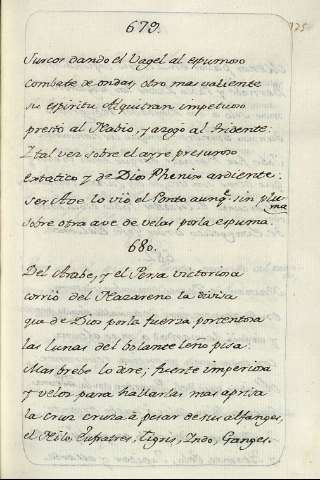 679.
125
Surcos dando el Vagel al espumoso
combate de ondas, otro mas valiente
su espiritu Alquitran impetuoso
prestó al Nabio, y arrojo al tridente:
I tal vez sobre el ayre presuroso
extatico y de Dios Phenix ardiente:
ser Ave lo vió el Ponto aunq.e sin pluma
sobre otra ave de velas por la espuma.
680.
Del Arabe, y el Persa victoriosa
corrió del Nazareno la divisa
que de Dios por la fuerza portentosa
las lunas del bolante leño pisa.
Mas brebe lo dire; fuerte imperiosa
y velos para hallarlas mas aprisa
la cruz cruza à pesar de sus alfanges,
el Nilo, Eufrates, Tigris, Indo, Ganges.